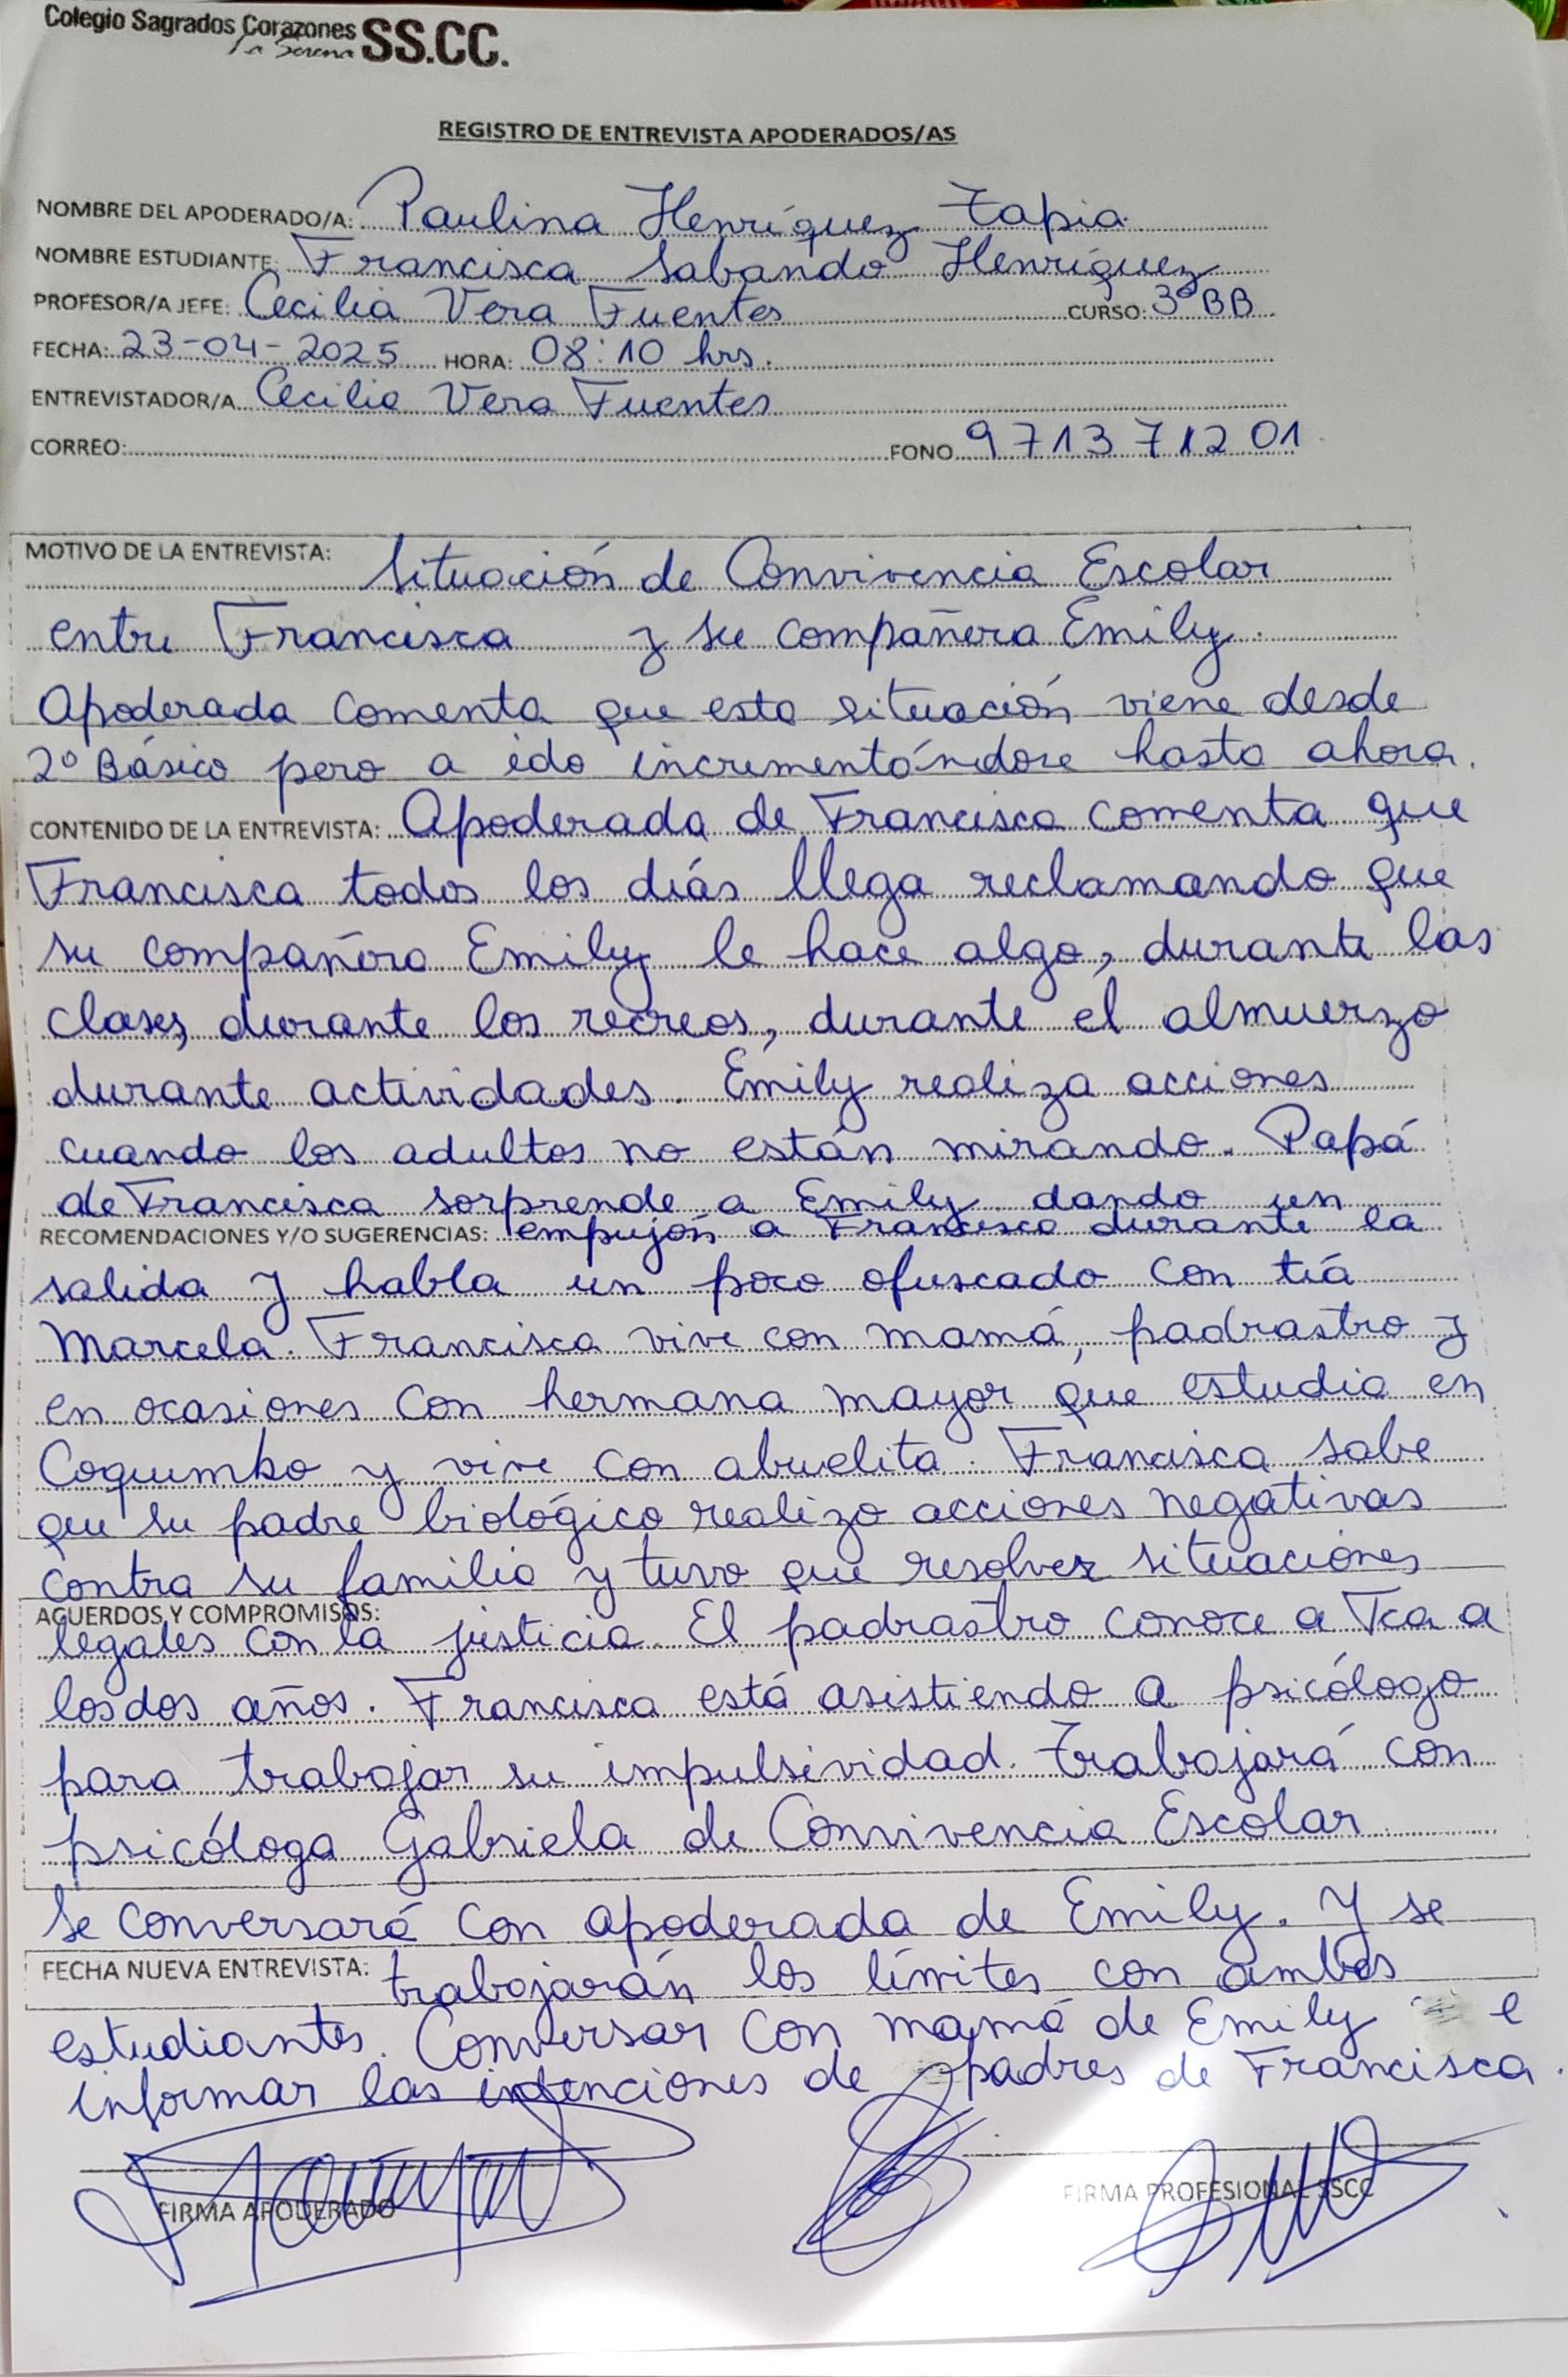 Colegio Sagrados Corazones SS.CC.
La Serena
REGISTRO DE ENTREVISTA APODERADOS/AS
NOMBRE DEL APODERADO/A: Paulina Henríquez Tapia
NOMBRE ESTUDIANTE: Francisca Sabando Henríquez
PROFESOR/A JEFE: Cecilia Vera Fuentes CURSO: 3° BB
FECHA: 23-04-2025 HORA: 08:10 hrs.
ENTREVISTADOR/A Cecilia Vera Fuentes
CORREO: FONO 9 7 1 3 7 1 2 01
MOTIVO DE LA ENTREVISTA: Situación de Convivencia Escolar
entre Francisca y su compañera Emily.
Apoderada comenta que esta situación viene desde
2° Básico pero a ido incrementándose hasta ahora.
CONTENIDO DE LA ENTREVISTA: Apoderada de Francisca comenta que
Francisca todos los diás llega reclamando que
su compañera Emily le hace algo, durante las
clases, durante los recreos, durante el almuerzo
durante actividades. Emily realiza acciones
cuando los adultos no están mirando. Papá
de Francisca sorprende a Emily dando un
RECOMENDACIONES Y/O SUGERENCIAS: empujón a Francisca durante la
salida y habla un poco ofuscado con tiá
Marcela. Francisca vive con mamá, padrastro y
en ocasiones con hermana mayor que estudia en
Coquimbo y vive con abuelita. Francisca sabe
que su padre biológico realizo acciones negativas
contra su familia y tuvo que resolver situaciones
ACUERDOS Y COMPROMISOS:
legales con la justicia. El padrastro conoce a Fca a
los dos años. Francisca está asistiendo a psicólogo
para trabajar su impulsividad. Trabajará con
psicóloga Gabriela de Convivencia Escolar
Se conversará con apoderada de Emily. Y se
FECHA NUEVA ENTREVISTA: trabajarán los límites con ambas
estudiantes. Conversar con mamá de Emily e
informar las intenciones de padres de Francisca.
FIRMA APODERADO FIRMA PROFESIONAL SSCC